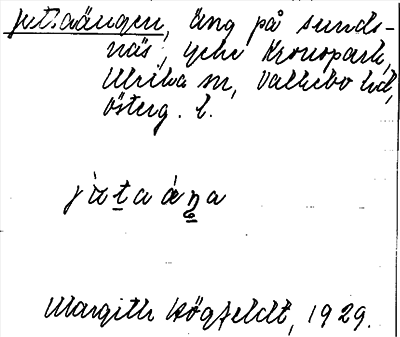 jutaängen, äng på sunds-
näs, yche Kronopark,
Ulrika sn, Valkebo hd,
Österg. l.
Margith Högfeldt, 1929.